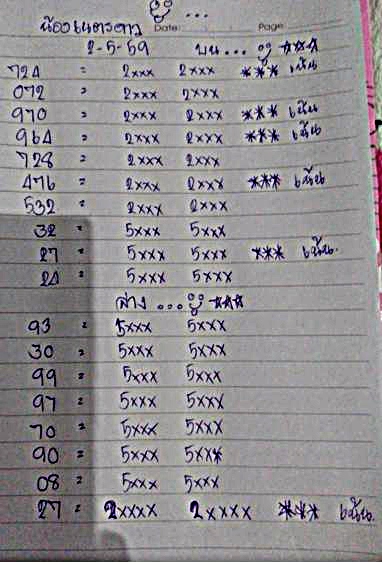 น้องเนตรดาว Date: Page:
2-5-59 บน... ***
724 = 2xxx 2xxx *** เน้น
072 = 2xxx 2xxx
970 = 2xxx 2xxx *** เน้น
964 = 2xxx 2xxx *** เน้น
728 = 2xxx 2xxx
476 = 2xxx 2xxx *** เน้น
532 = 2xxx 2xxx
32 = 5xxx 5xxx
27 = 5xxx 5xxx *** เน้น.
24 = 5xxx 5xxx
ล่าง... ***
93 = 5xxx 5xxx
30 = 5xxx 5xxx
99 = 5xxx 5xxx
97 = 5xxx 5xxx
70 = 5xxx 5xxx
90 = 5xxx 5xxx
08 = 5xxx 5xxx
27 = 2xxxx 2xxxx *** เน้น.